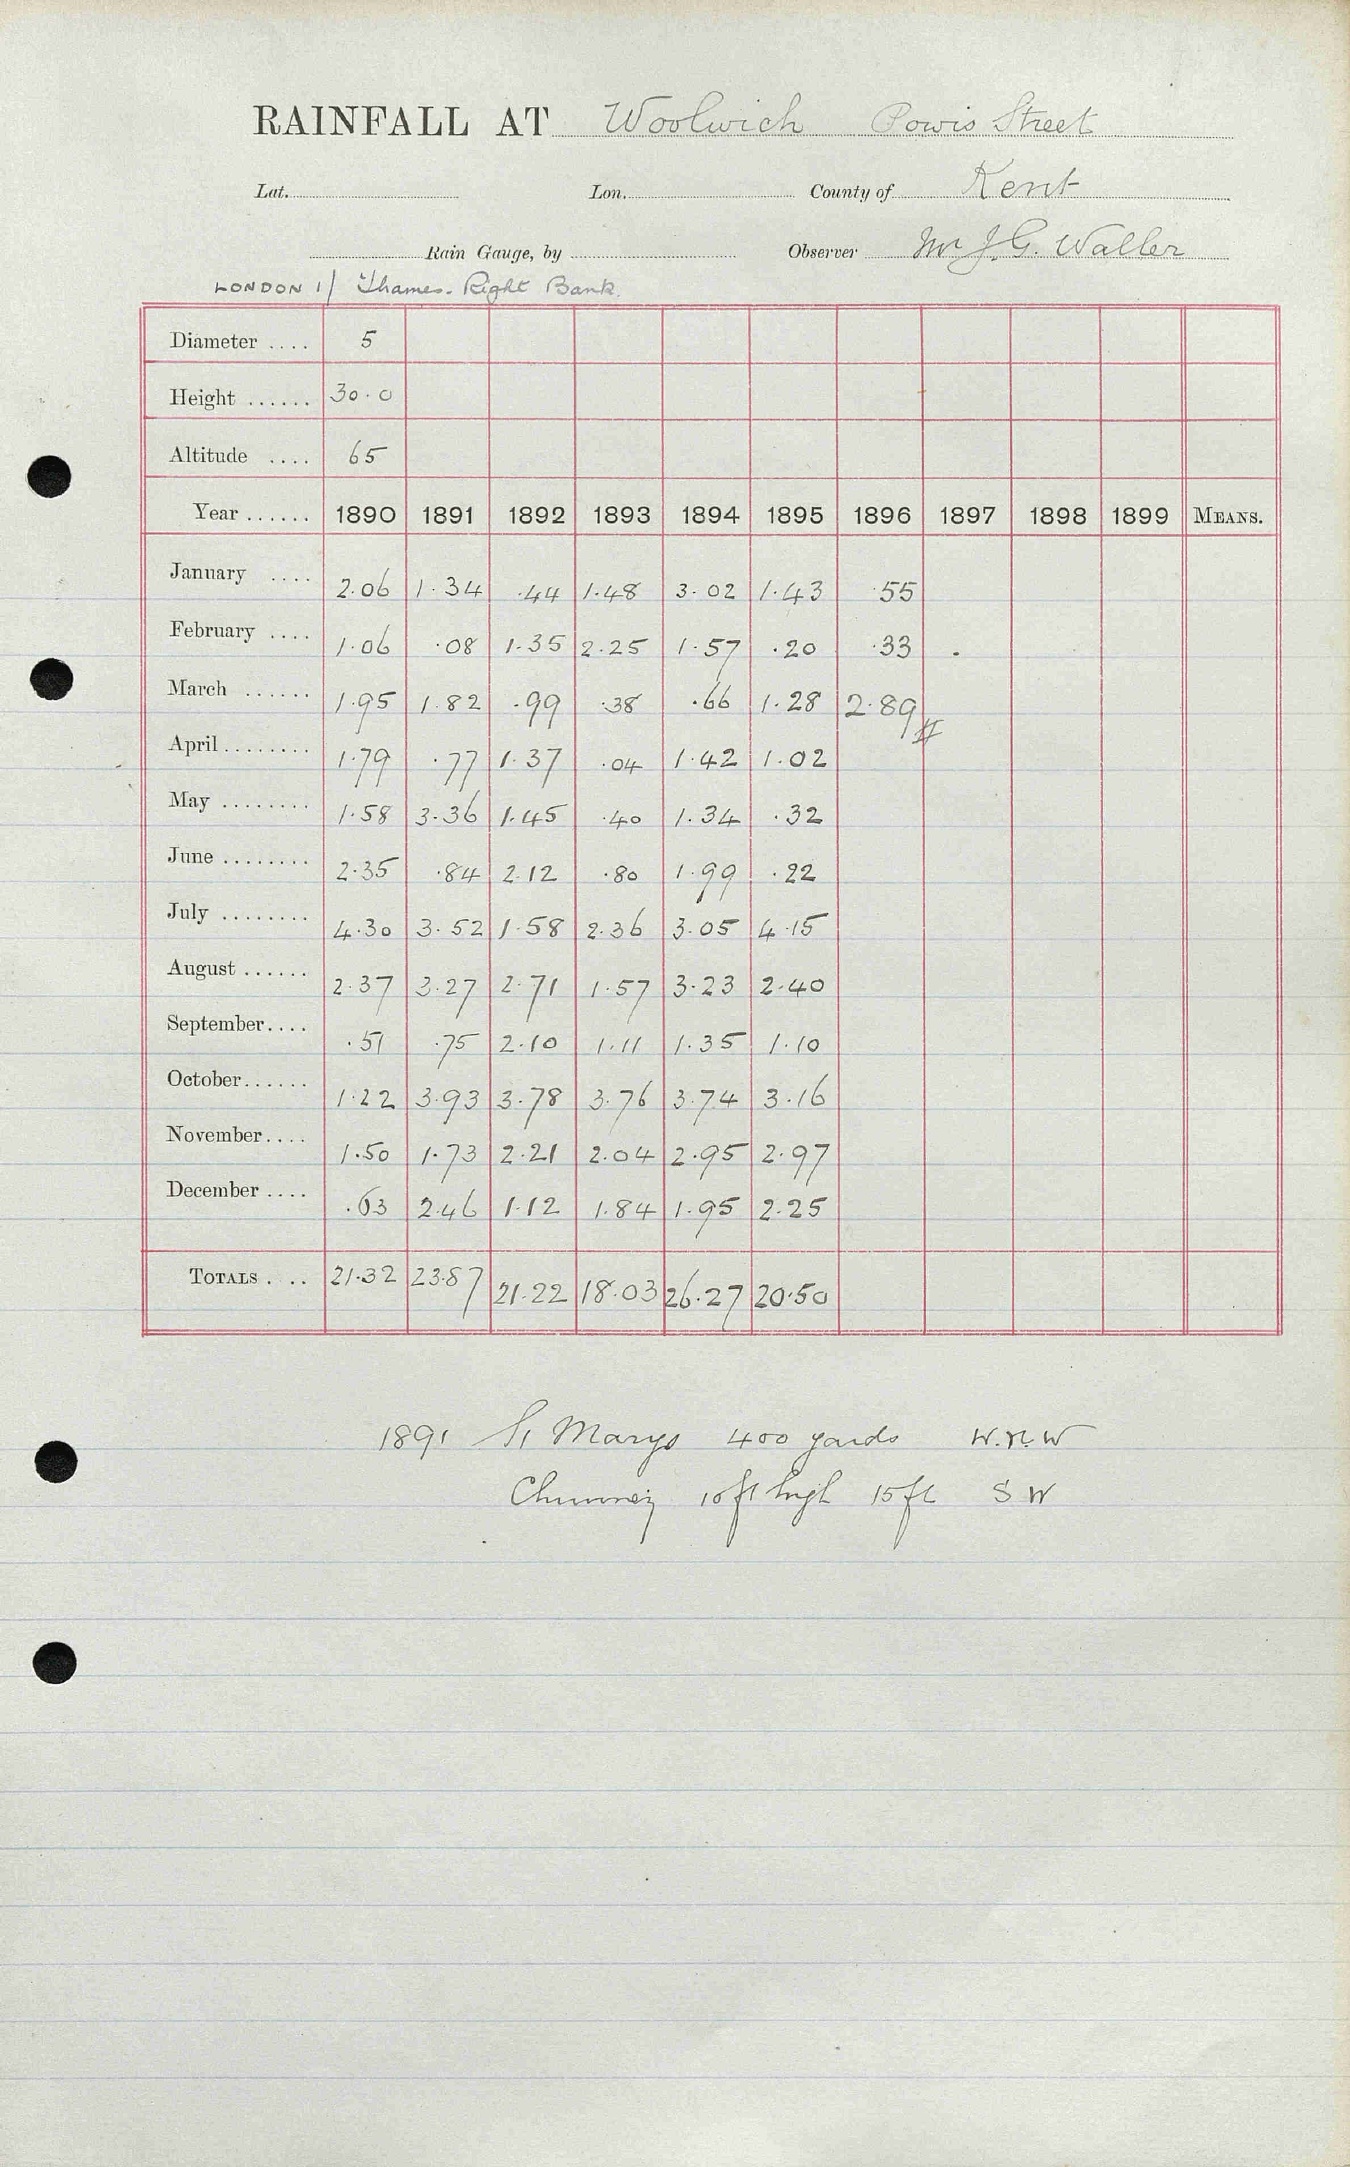 RAINFALL AT Woolwich Powis Street
Lat. Lon. County of Kent
Rain Gauge, by Observer Mr J. G. Waller
LONDON 1/ Thames. Right Bank.
Diameter .... 5
Height ...... 30.0
Altitude .... 65
Year ...... 1890 1891 1892 1893 1894 1895 1896 1897 1898 1899 MEANS.
January .... 2.06 1.34 .44 1.48 3.02 1.43 .55
February .... 1.06 .08 1.35 2.25 1.57 .20 .33
March ...... 1.95 1.82 .99 .38 .66 1.28 2.89 #
April ........ 1.79 .77 1.37 .04 1.42 1.02
May ........ 1.58 3.36 1.45 .40 1.34 .32
June ........ 2.35 .84 2.12 .80 1.99 .22
July ........ 4.30 3.52 1.58 2.36 3.05 4.15
August ...... 2.37 3.27 2.71 1.57 3.23 2.40
September.... .51 .75 2.10 1.11 1.35 1.10
October...... 1.22 3.93 3.78 3.76 3.74 3.16
November.... 1.50 1.73 2.21 2.04 2.95 2.97
December .... .63 2.46 1.12 1.84 1.95 2.25
TOTALS .... 21.32 23.87 21.22 18.03 26.27 20.50
1891 St Marys 400 yards W.N.W
Chimney 10 ft high 15 ft S W